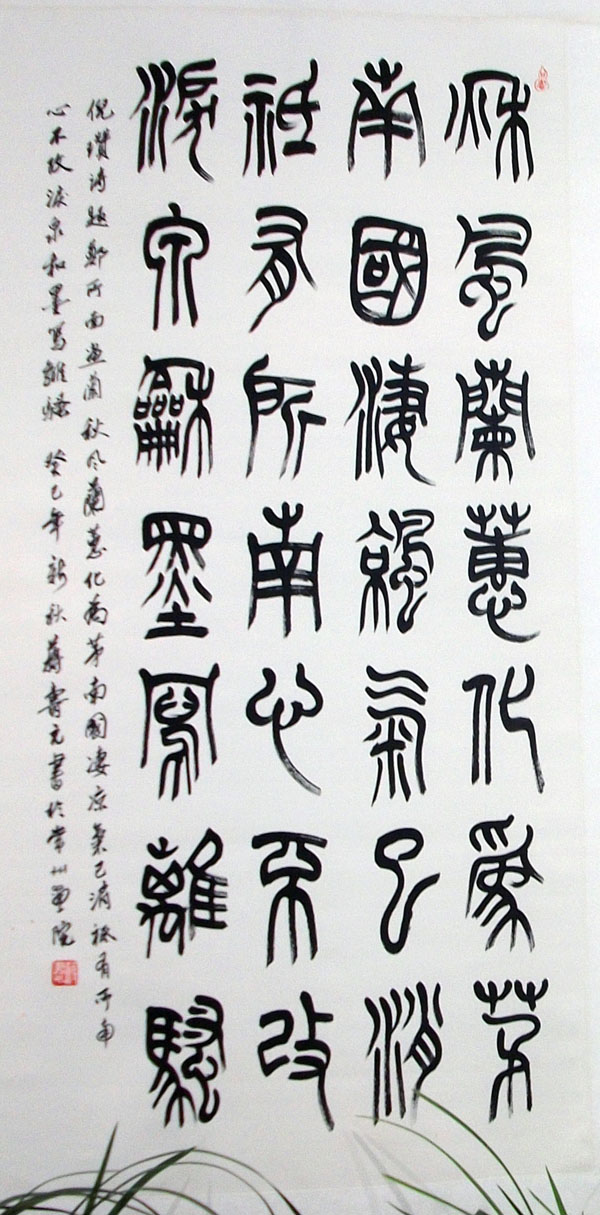 秋風蘭蕙化為茅
南國淒涼氣已消
祗有所南心不改
淚泉龢墨寫離騷
倪瓚詩題鄭所南畫蘭秋風蘭蕙化為茅南國淒涼氣已消祗有所南
心不改淚泉和墨寫離騷 癸巳年新秋蔣壽元書於常州畫院